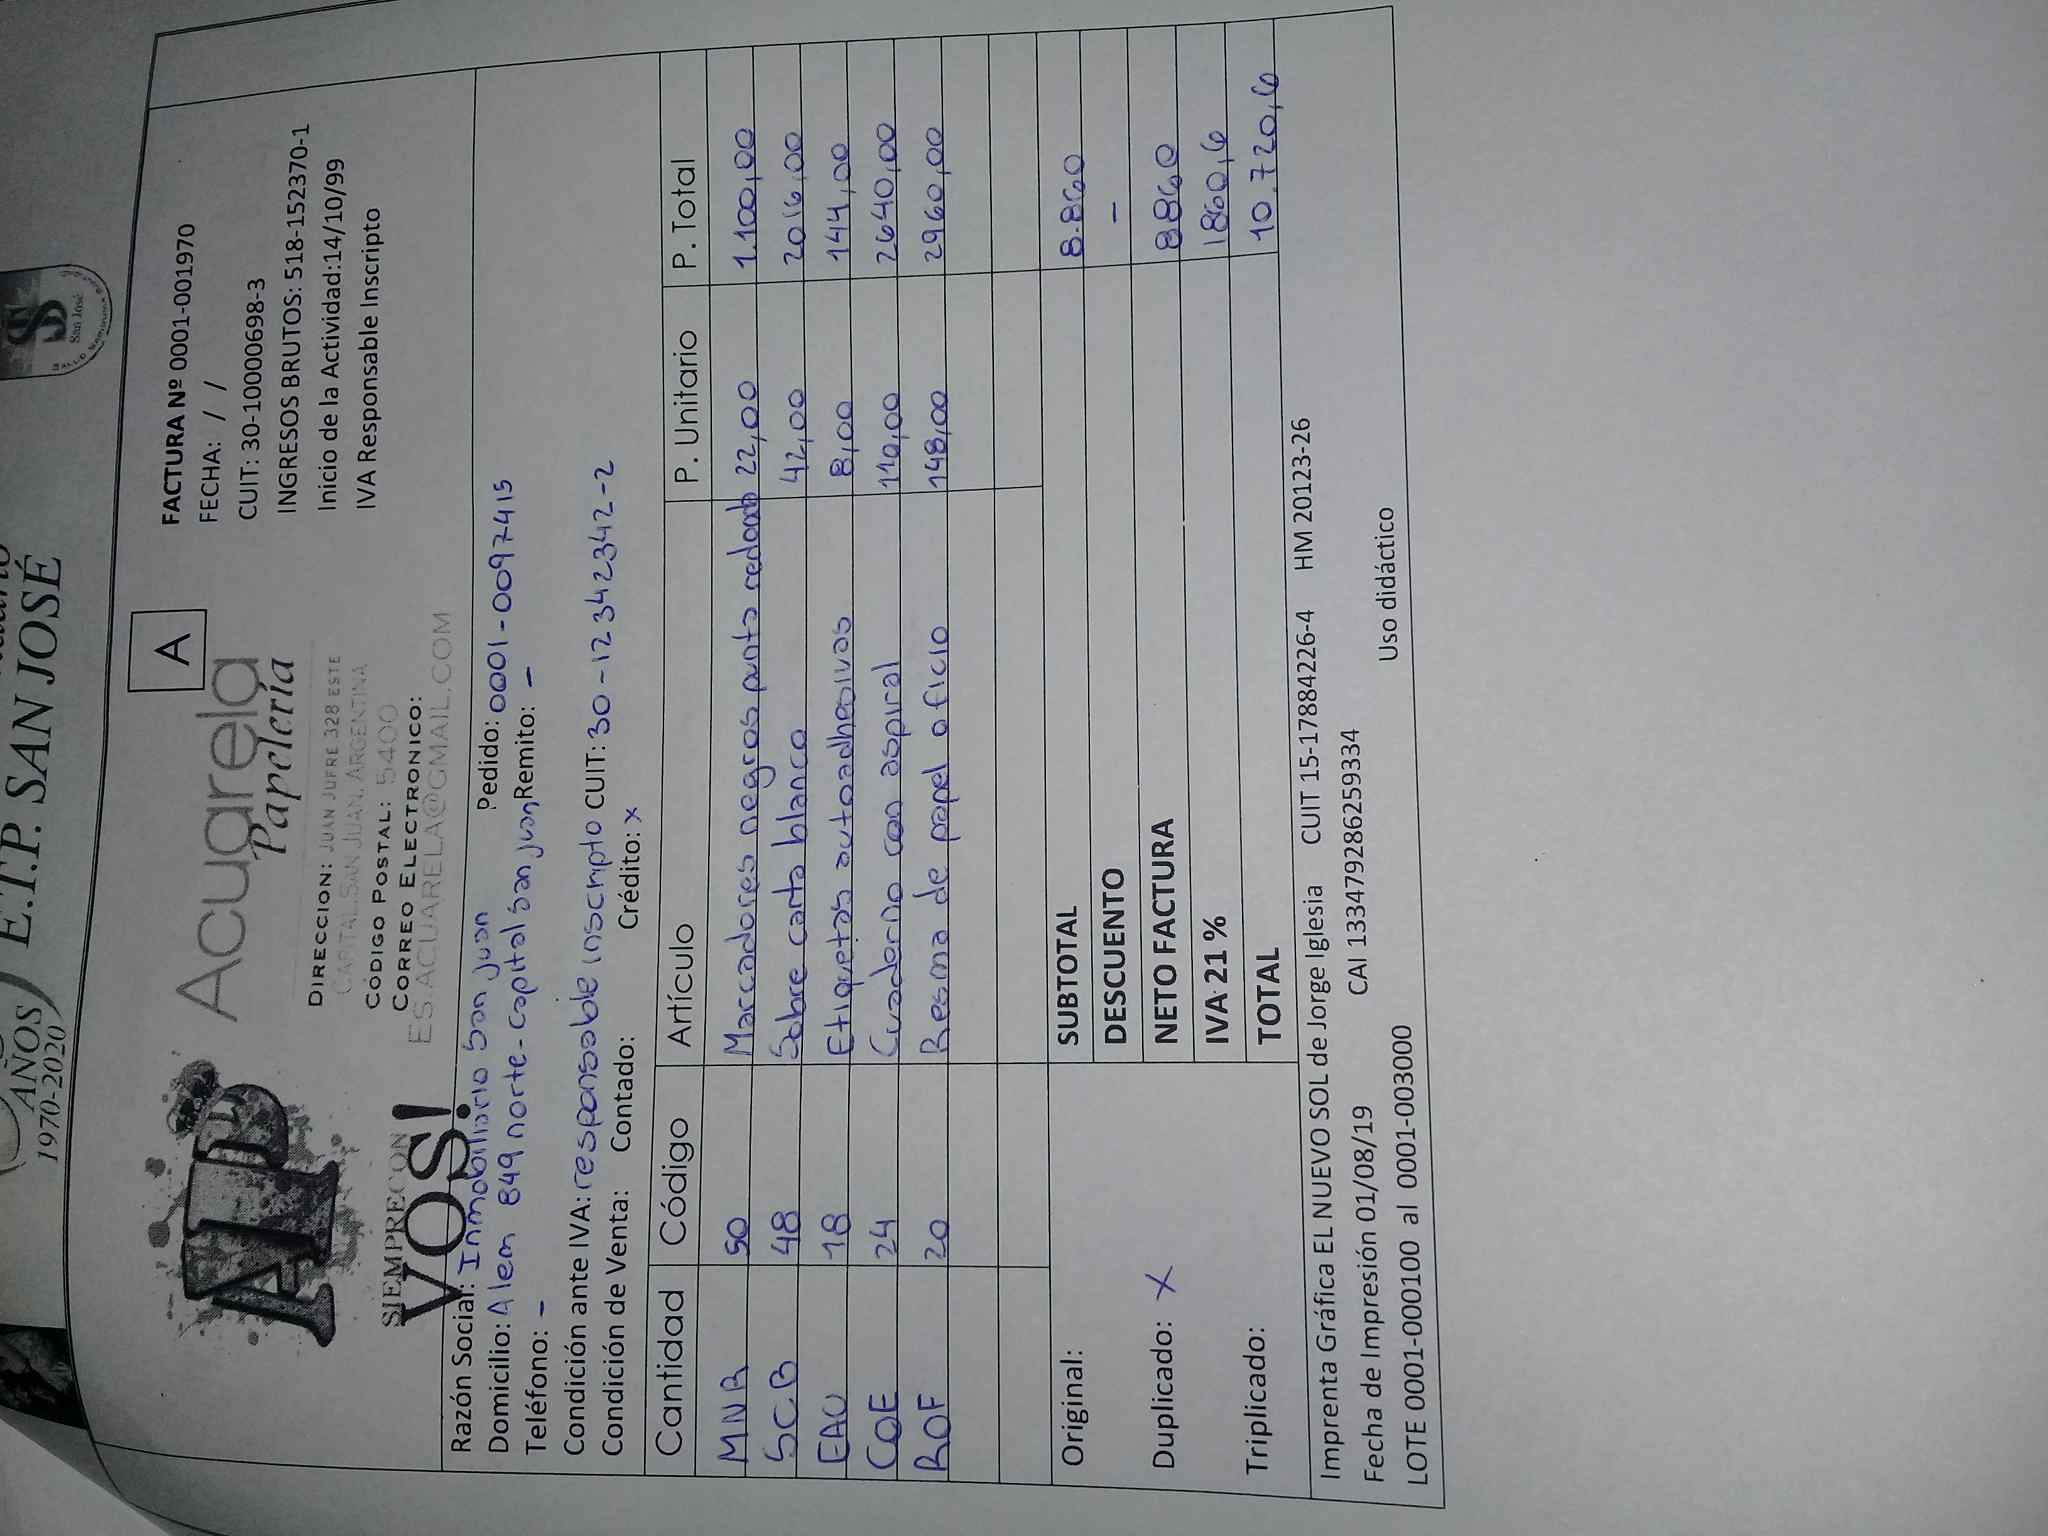 AÑOS
1970-2020
E.T.P. SAN JOSÉ
San José
SIEMPRE CON
VOS!
Acuarela
Papelería
DIRECCION: JUAN JUFRE 328 ESTE
CAPITAL, SAN JUAN, ARGENTINA
CÓDIGO POSTAL: 5400
CORREO ELECTRONICO:
ES.ACUARELA@GMAIL.COM
A
FACTURA Nº 0001-001970
FECHA: / /
CUIT: 30-10000698-3
INGRESOS BRUTOS: 518-152370-1
Inicio de la Actividad:14/10/99
IVA Responsable Inscripto
Razón Social: Inmobiliario San Juan Pedido: 0001-00972415
Domicilio: Alem 849 norte-capital san juan Remito: -
Teléfono: -
Condición ante IVA: responsable inscripto CUIT: 30-12342342-2
Condición de Venta: Contado: Crédito: x
Cantidad Código Artículo P. Unitario P. Total
MNR 50 Marcadores negros punta redonda 22,00 1.100,00
SCB 48 Sobre carta blanco 42,00 2016,00
EAU 18 Etiquetas autoadhesivas 8,00 144,00
COE 24 Cuaderno con aspiral 110,00 2640,00
ROF 20 Resma de papel oficio 148,00 2960,00
Original: SUBTOTAL 8.860
DESCUENTO -
Duplicado: X NETO FACTURA 8860
IVA 21 % 1860,6
Triplicado: TOTAL 10.720,6
Imprenta Gráfica EL NUEVO SOL de Jorge Iglesia CUIT 15-17884226-4 HM 20123-26
Fecha de Impresión 01/08/19 CAI 133479286259334
LOTE 0001-000100 al 0001-003000 Uso didáctico